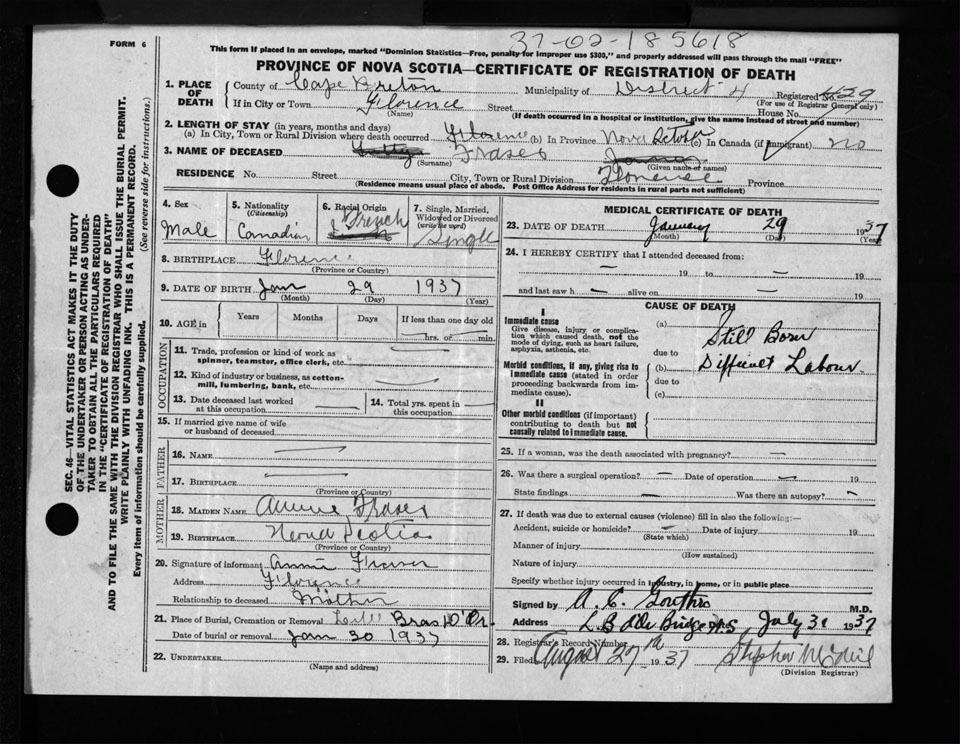 37-02-185618
FORM 6
This form if placed in an envelope, marked "Dominion Statistics—Free, penalty for improper use $300," and properly addressed will pass through the mail "FREE"
PROVINCE OF NOVA SCOTIA—CERTIFICATE OF REGISTRATION OF DEATH
1. PLACE OF DEATH County of Cape Breton Municipality of District 4 Registered No. 429
(For use of Registrar General only)
If in City or Town Florence Street House No.
(Name) (If death occurred in a hospital or institution, give the name instead of street and number)
2. LENGTH OF STAY (in years, months and days)
(a) In City, Town or Rural Division where death occurred Florence (b) In Province Nova Scotia (c) In Canada (if immigrant) no
3. NAME OF DECEASED Fraser
(Surname) (Given name or names)
RESIDENCE No. Street City, Town or Rural Division Florence Province
(Residence means usual place of abode. Post Office Address for residents in rural parts not sufficient)
4. Sex Male
5. Nationality (Citizenship) Canadian
6. Racial Origin French
7. Single, Married, Widowed or Divorced (write the word) Single
8. BIRTHPLACE Florence
(Province or Country)
9. DATE OF BIRTH Jan 29 1937
(Month) (Day) (Year)
10. AGE in Years Months Days If less than one day old
hrs. or min.
OCCUPATION
11. Trade, profession or kind of work as spinner, teamster, office clerk, etc.
12. Kind of industry or business, as cotton-mill, lumbering, bank, etc.
13. Date deceased last worked at this occupation
14. Total yrs. spent in this occupation
15. If married give name of wife or husband of deceased
FATHER
16. NAME
17. BIRTHPLACE
(Province or Country)
MOTHER
18. MAIDEN NAME Annie Fraser
19. BIRTHPLACE Nova Scotia
(Province or Country)
20. Signature of informant Annie Fraser
Address Florence
Relationship to deceased Mother
21. Place of Burial, Cremation or Removal Little Bras D'Or
Date of burial or removal Jan 30 1937
22. UNDERTAKER
(Name and address)
MEDICAL CERTIFICATE OF DEATH
23. DATE OF DEATH January 29 1937
(Month) (Day) (Year)
24. I HEREBY CERTIFY that I attended deceased from:
19 to 19
and last saw h alive on 19
CAUSE OF DEATH
I
Immediate cause
Give disease, injury or complication which caused death, not the mode of dying, such as heart failure, asphyxia, asthenia, etc.
(a) Still Born
due to
Morbid conditions, if any, giving rise to immediate cause (stated in order proceeding backwards from immediate cause).
(b) Difficult Labour
due to
(c)
II
Other morbid conditions (if important) contributing to death but not causally related to immediate cause.
25. If a woman, was the death associated with pregnancy?
26. Was there a surgical operation? Date of operation 19
State findings Was there an autopsy?
27. If death was due to external causes (violence) fill in also the following:—
Accident, suicide or homicide? Date of injury 19
(State which)
Manner of injury
(How sustained)
Nature of injury
Specify whether injury occurred in industry, in home, or in public place
Signed by A. C. M.D.
Address L. B d'Or Bridge N.S July 31 1937
28. Registrar's Record Number
29. Filed August 27th 1937 Stephen McNeil
(Division Registrar)
SEC. 46—VITAL STATISTICS ACT MAKES IT THE DUTY
OF THE UNDERTAKER OR PERSON ACTING AS UNDER-
TAKER TO OBTAIN ALL THE PARTICULARS REQUIRED
IN THE "CERTIFICATE OF REGISTRATION OF DEATH"
AND TO FILE THE SAME WITH THE DIVISION REGISTRAR WHO SHALL ISSUE THE BURIAL PERMIT.
WRITE PLAINLY WITH UNFADING INK. THIS IS A PERMANENT RECORD.
Every item of information should be carefully supplied. (See reverse side for instructions.)